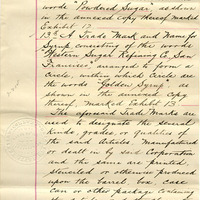 words "Powdered Sugar" as shown
in the annexed copy thereof marked
Exhibit 12
13th A Trade Mark and Name for
Syrup consisting of the words
"Western Sugar Refining Co. San
Francisco" arranged to form a
Circle, within which Circle are
the words "Golden Syrup" as
shown in the annexed copy
thereof, marked Exhibit 13
The aforesaid Trade Marks are
used to designate the several
kinds, grades, or qualities of
the said Articles Manufactured
or dealt in by said Corporation
and the same are printed,
stenciled or otherwise produced
upon the barrel, box, case
can or other package containing